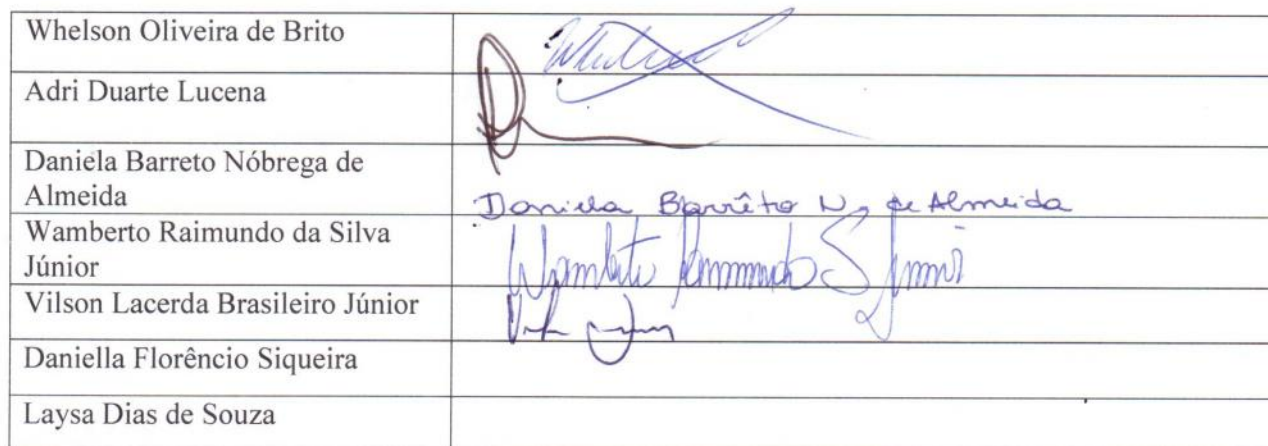 Whelson Oliveira de Brito
Adri Duarte Lucena
Daniela Barreto Nóbrega de
Almeida
Daniela Barrêto N. de Almeida
Wamberto Raimundo da Silva
Júnior
Wamberto Raimundo S Júnior
Vilson Lacerda Brasileiro Júnior
Daniella Florêncio Siqueira
Laysa Dias de Souza